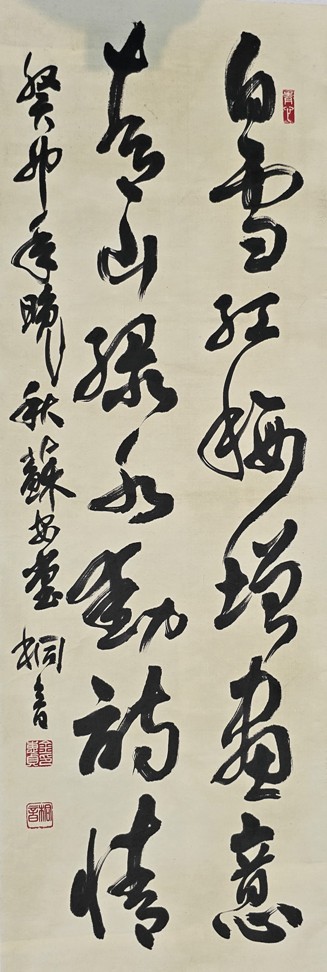 白雪红梅增画意
青山绿水动诗情
癸卯年晚秋蘇安堂桐音
桐音